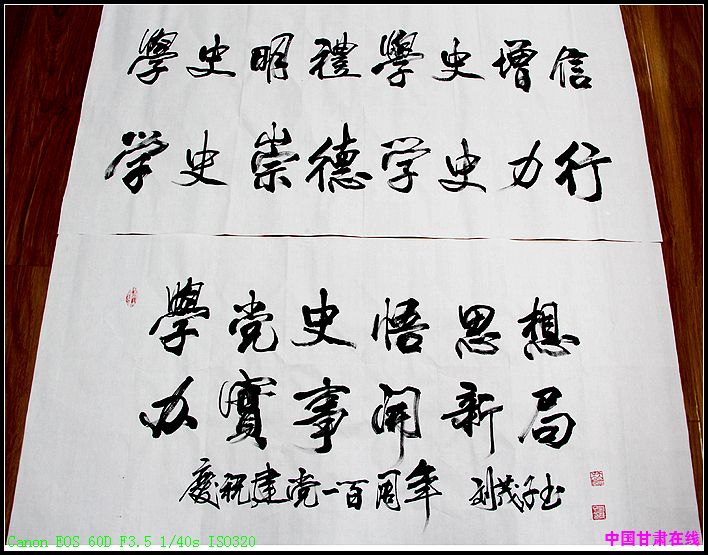 學史明禮學史增信
学史崇德学史力行
學党史悟思想
办實事開新局
慶祝建党一百周年 刘茂子书
Canon EOS 60D F3.5 1/40s ISO320
中国甘肃在线